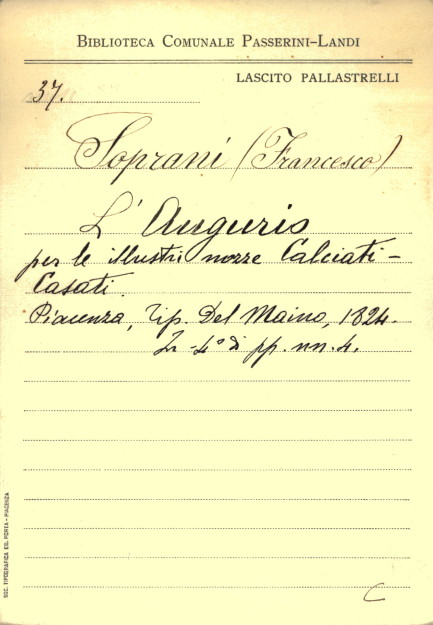 BIBLIOTECA COMUNALE PASSERINI-LANDI
LASCITO PALLASTRELLI
37.
Soprani (Francesco)
L'Augurio
per le illustri nozze Calciati-
Casati.
Piacenza, Tip. Del Maino, 1824.
In-4° di pp. nn. 4.
SOC. TIPOGRAFICA ED. PORTA - PIACENZA
C